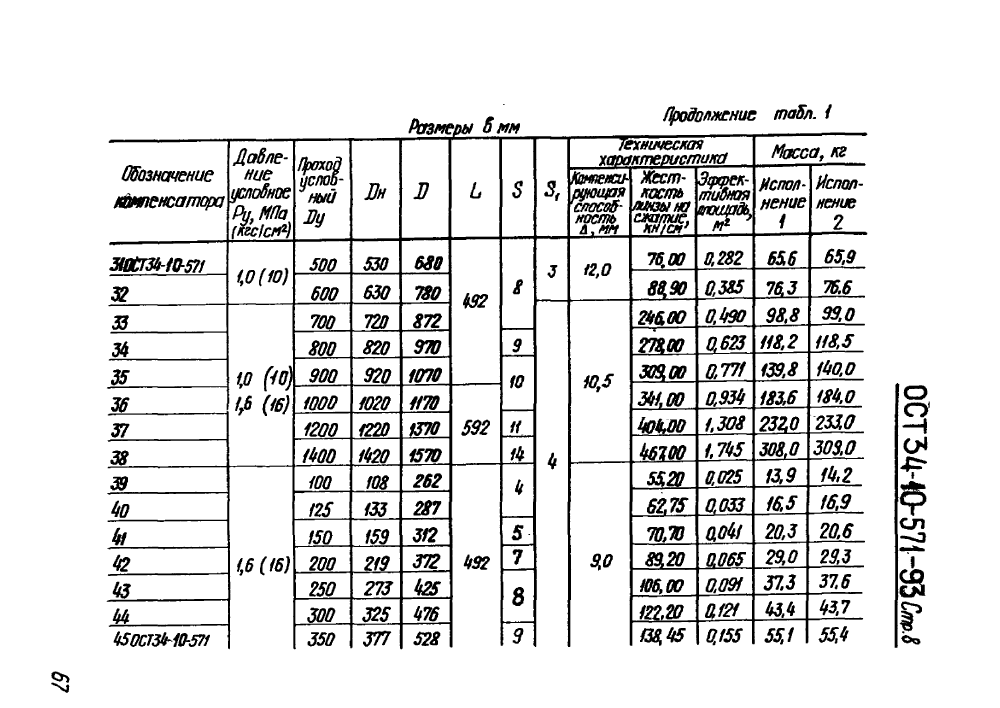 Продолжение табл. 1
Размеры в мм
Обозначение компенсатора | Давление условное Ру, МПа (кгс/см²) | Проход условный Dу | Dн | D | L | S | S₁ | Техническая характеристика | Масса, кг
Компенсирующая способность Δ, мм | Жесткость линзы на сжатие, кН/см | Эффективная площадь, м² | Исполнение 1 | Исполнение 2
31 ОСТ34-10-571 | 1,0 (10) | 500 | 530 | 680 | 492 | 8 | 3 | 12,0 | 76,00 | 0,282 | 65,6 | 65,9
32 | 600 | 630 | 780 | 88,90 | 0,385 | 76,3 | 76,6
33 | 1,0 (10) 1,6 (16) | 700 | 720 | 872 | 4 | 10,5 | 246,00 | 0,490 | 98,8 | 99,0
34 | 800 | 820 | 970 | 9 | 278,00 | 0,623 | 118,2 | 118,5
35 | 900 | 920 | 1070 | 10 | 309,00 | 0,771 | 139,8 | 140,0
36 | 1000 | 1020 | 1170 | 592 | 341,00 | 0,934 | 183,6 | 184,0
37 | 1200 | 1220 | 1370 | 11 | 404,00 | 1,308 | 232,0 | 233,0
38 | 1400 | 1420 | 1570 | 14 | 467,00 | 1,745 | 308,0 | 309,0
39 | 1,6 (16) | 100 | 108 | 262 | 492 | 4 | 9,0 | 55,20 | 0,025 | 13,9 | 14,2
40 | 125 | 133 | 287 | 62,75 | 0,033 | 16,5 | 16,9
41 | 150 | 159 | 312 | 5 | 70,70 | 0,041 | 20,3 | 20,6
42 | 200 | 219 | 372 | 7 | 89,20 | 0,065 | 29,0 | 29,3
43 | 250 | 273 | 425 | 8 | 106,00 | 0,091 | 37,3 | 37,6
44 | 300 | 325 | 476 | 122,20 | 0,121 | 43,4 | 43,7
45 ОСТ34-10-571 | 350 | 377 | 528 | 9 | 138,45 | 0,155 | 55,1 | 55,4
ОСТ 34-10-571-93 Стр. 8
67